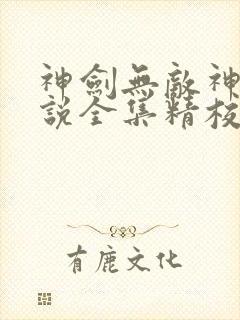 神劍無敵神
說全集精校
有鹿文化